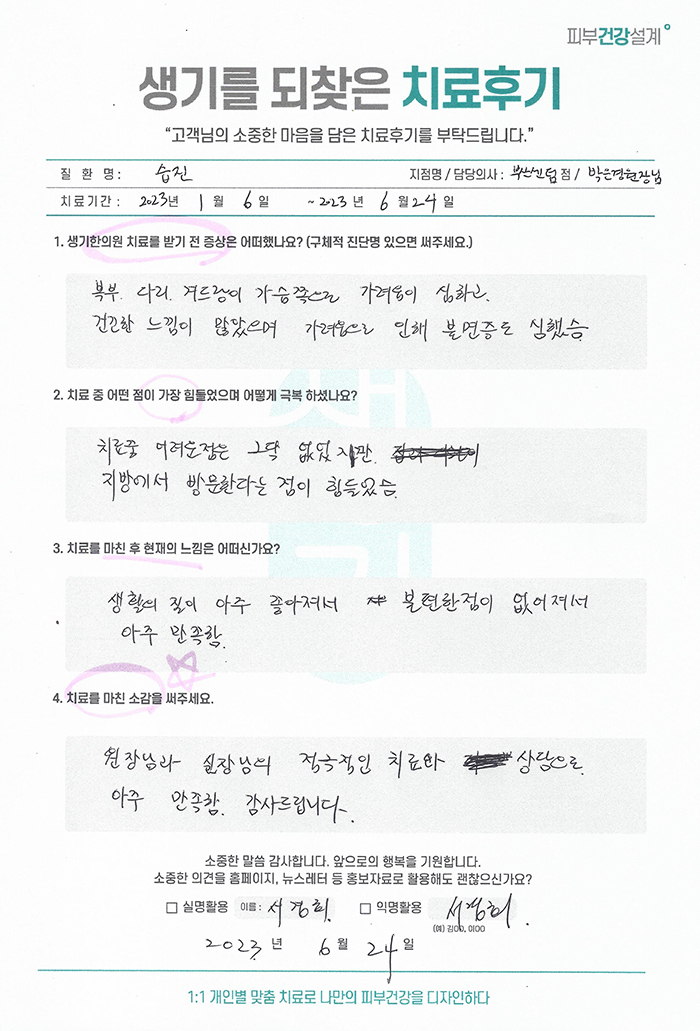 피부건강설계
생기를 되찾은 치료후기
“고객님의 소중한 마음을 담은 치료후기를 부탁드립니다.”
질 환 명 : 습진 지점명 / 담당의사 : 부산서면 점 / 박은경원장님
치료기간 : 2023년 1 월 6 일 ~ 2023 년 6 월 24 일
1. 생기한의원 치료를 받기 전 증상은 어떠했나요? (구체적 진단명 있으면 써주세요.)
복부. 다리. 겨드랑이 가슴쪽으로 가려움이 심하고.
건조한 느낌이 많았으며 가려움으로 인해 불면증도 심했음
2. 치료 중 어떤 점이 가장 힘들었으며 어떻게 극복 하셨나요?
치료중 어려운점은 그닥 없었지만.
지방에서 방문한다는 점이 힘들었음.
3. 치료를 마친 후 현재의 느낌은 어떠신가요?
생활의 질이 아주 좋아져서 불편한점이 없어져서
아주 만족함.
4. 치료를 마친 소감을 써주세요.
원장님과 실장님의 적극적인 치료와 상담으로
아주 만족함. 감사드립니다.
소중한 말씀 감사합니다. 앞으로의 행복을 기원합니다.
소중한 의견을 홈페이지, 뉴스레터 등 홍보자료로 활용해도 괜찮으신가요?
실명활용 이름 : 서경희. 익명활용 서경희.
(예) 김OO, 이OO
2023 년 6 월 24 일
1:1 개인별 맞춤 치료로 나만의 피부건강을 디자인하다